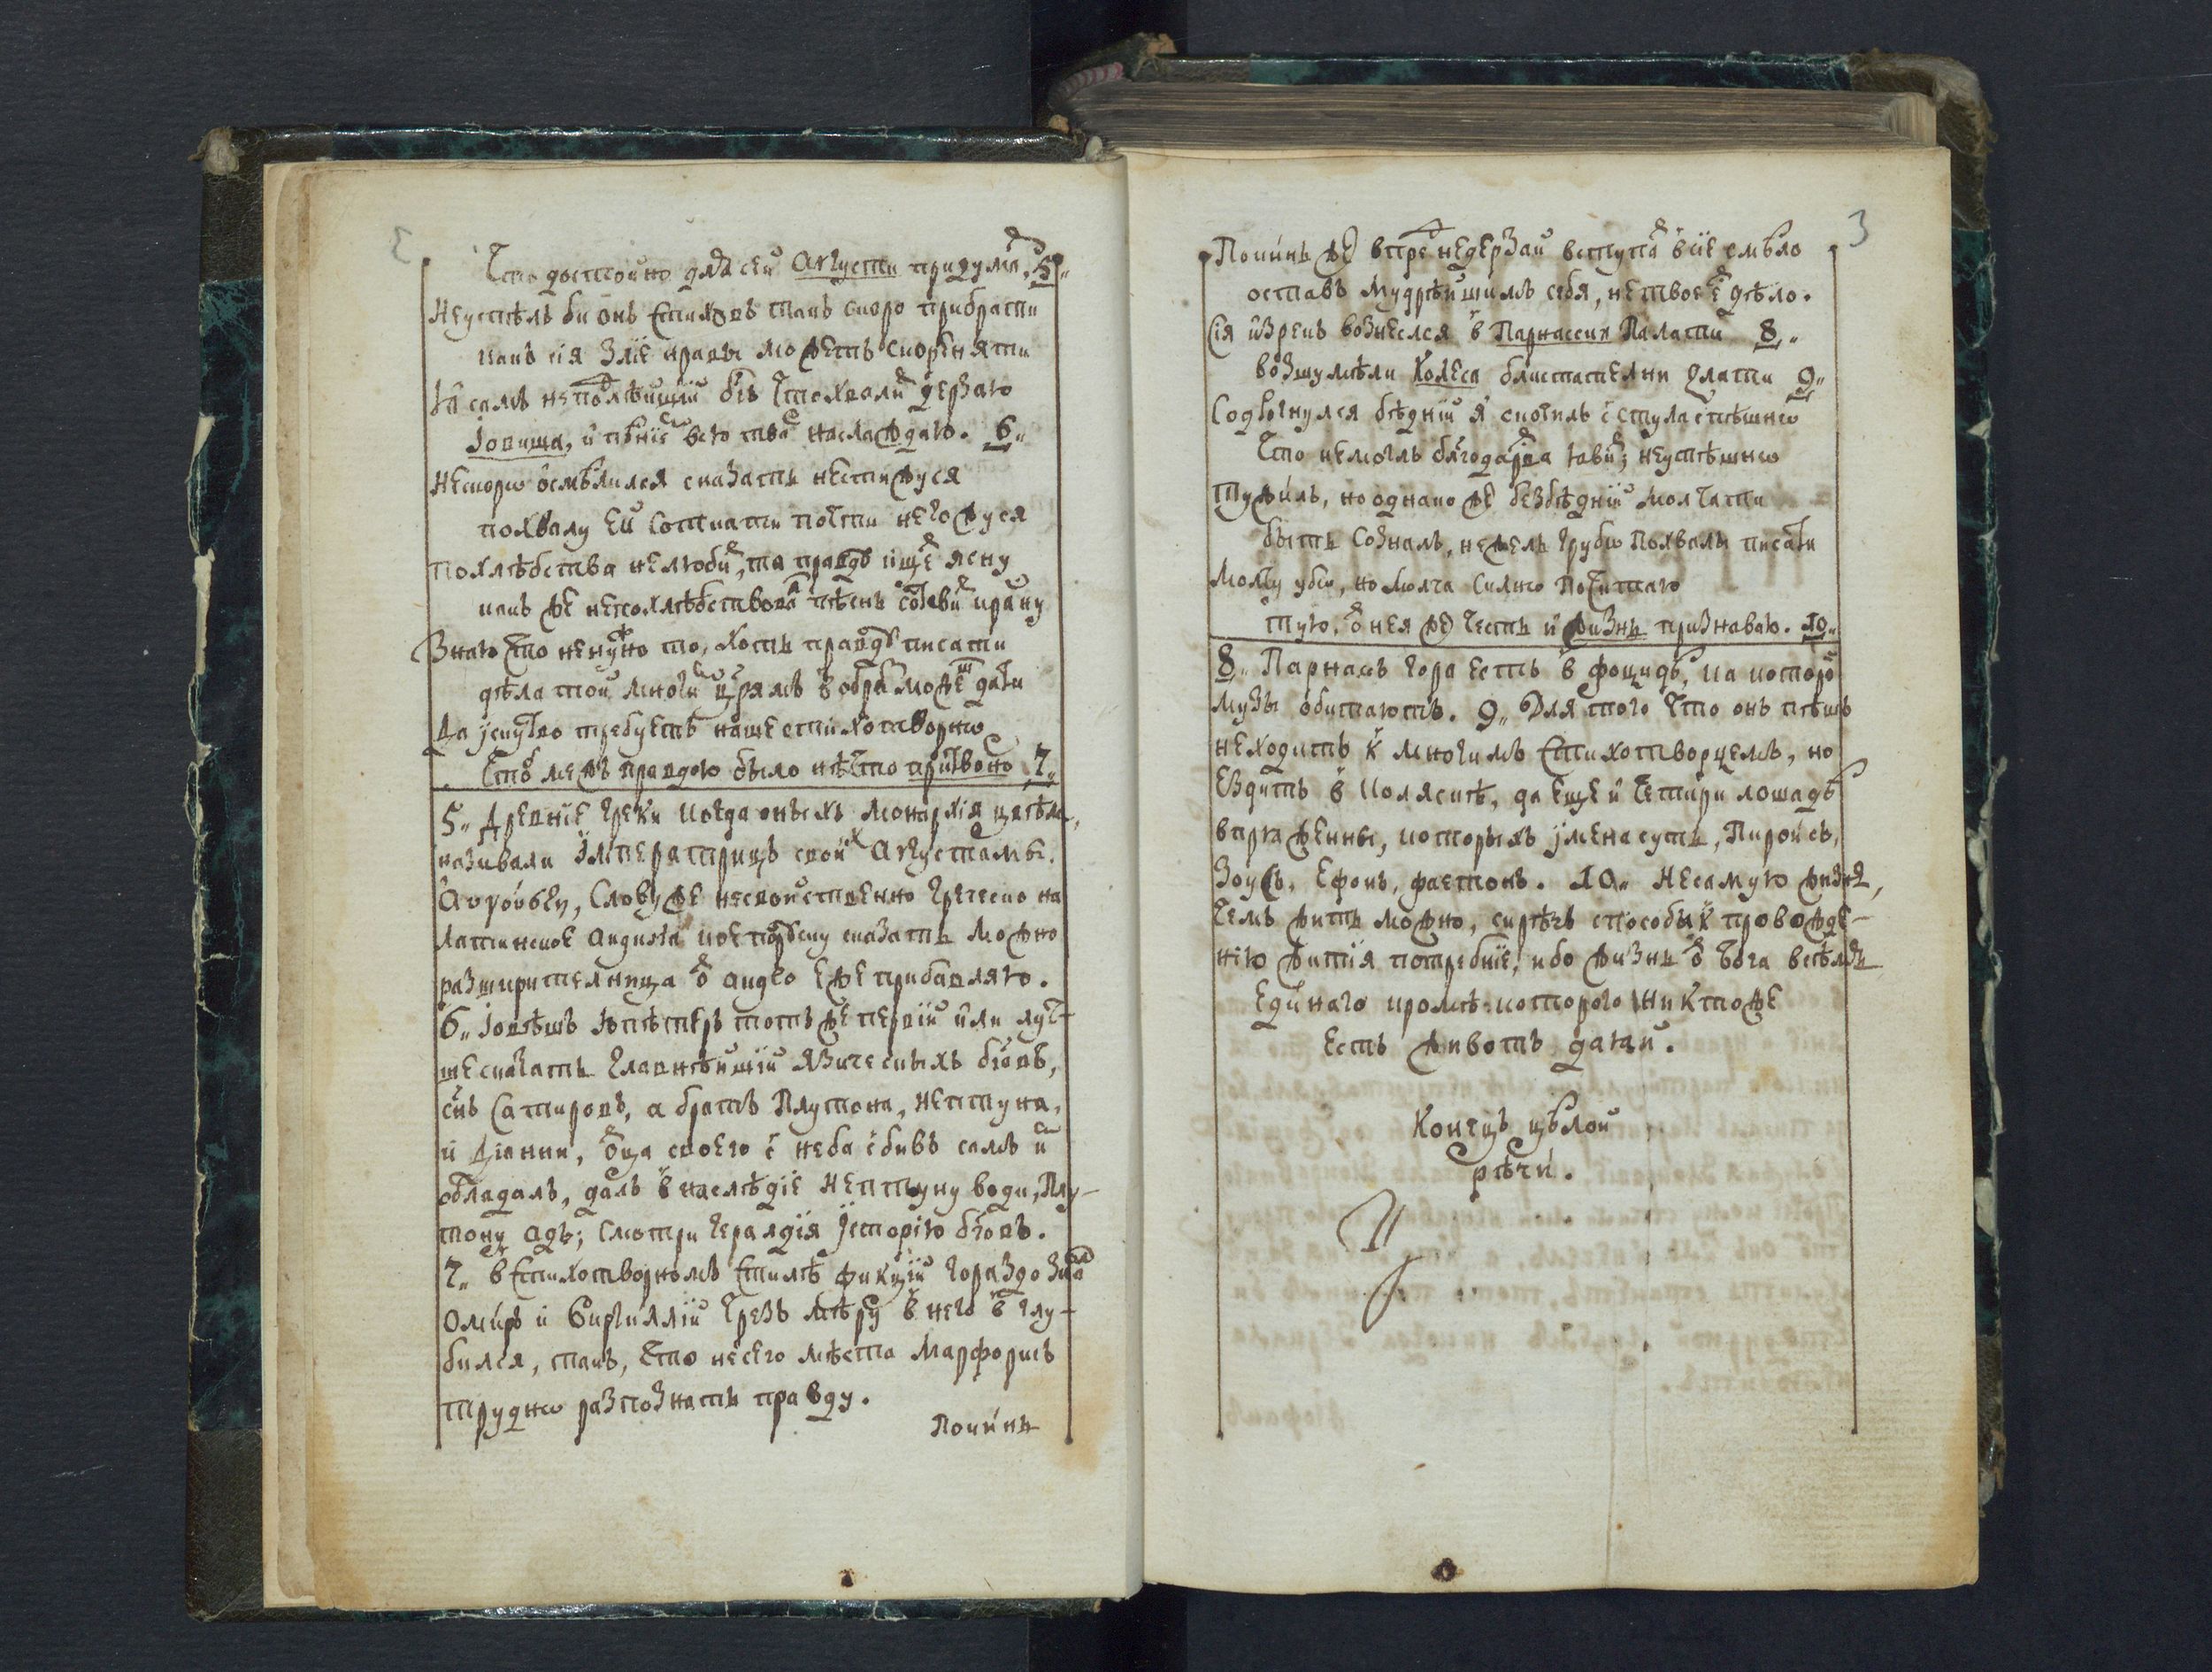 Что достойно для сей Августи придума, 5„
Неуспѣлъ би онъ стиховъ такъ скоро прибрати
какъ сія злїе нравы можетъ скореняти
сказать нестижуся
похвалу ей соткати почти негожуся
похлѣбства нелюби, та правдъ ище ясну
какъ же непохлѣбствова пѣснь стави красну
Знаю что ненужно то, хоть правду писати
дѣла той многи црямъ в обра може дати
Да јскуство требуетъ наше стіхотворно
Что межъ правдою было нѣчто притворно 7„
5„ Древніе греки когда онихъ монархія цвѣла,
називали Імператрицъ свои Августами.
слову же несвойственно гречески на
латинское Augusta кое порруску сказать можно
разширителница о augeo еже прибавляю.
6„ Јовѣшъ Юпѣтеръ тотъ же первій или луч-
ше сказать главнѣйшій язическихъ бговъ,
снъ Сатировъ, а братъ Плутона, Нептуна,
и Діанни, оца своего с неба сбивъ самъ и
обладалъ, далъ в наслѣдіе Нептуну води, Плу-
тону адъ; смотри Гералдія јсторію бговъ.
7„ в стихотворномъ стилѣ фикцій гораздо
Омиръ и Виргиллій чрезъ мѣру в него в глу-
бился, такъ, что несего мѣста Марфоримъ
трудно разпознать правду.
Покинь
3
Покинь же впре недерзай вступа в сіе смѣло
оставъ мудрѣйшимъ себя, нетвое е дѣло.
Сія изрекъ вознеслся в Парнасски палати 8„
возшумѣли колеса блистателни злати 9„
Содвигнулся бѣдній я скочилъ с стула спѣшно
Что немоглъ благода јави; неуспѣшно
Тужилъ, но однако же безбѣдній молчати
быть созналъ, нежель грубо похвалы писати
Молчу убо, но молча силно почитаю
тую, о нея же честь и жизнь признаваю. 10„
8„ Парнасъ гора есть в фоцидѣ, на которо
музы обитаютъ. 9„ Для того что онъ пѣшъ
неходитъ к многимъ стихотворцемъ, но
ездитъ в колясцѣ, да еще и четири лошадѣ
впряженны, которыхъ јмена суть, Пироисъ,
Зоусъ, Ефонъ, фаетонъ. 10„ Несамую жизнь,
чемъ жить можно, сирѣчь способы к провожде-
нію житія потребніе, ибо жизнь о Бога всѣмъ
единаго кромѣ которого никтоже
есть животъ даяй.
Конецъ цѣлой
рѣчи.